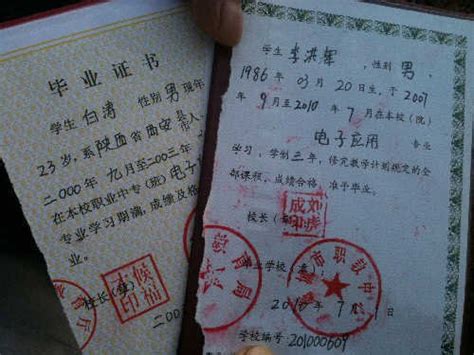 毕业证书
学生 白涛 性别 男 现年
23岁,系陕西省西安
市人,
二000年九月至二00三年
在本校职业中专(班)电子
专业学习期满,成绩及格
业。
校长(章)
二00
育厅
学生 李洪辉 ,性别 男,
1986年 03月20日生,于2007
年9月至2010年7月在本校(院)
电子应用 专业
学习,学制三年,修完教学计划规定的全
部课程,成绩合格,准予毕业。
校长(章)
毕业学校(章):
2010年7月1日
学校编号 201000609
教育局
市职教中